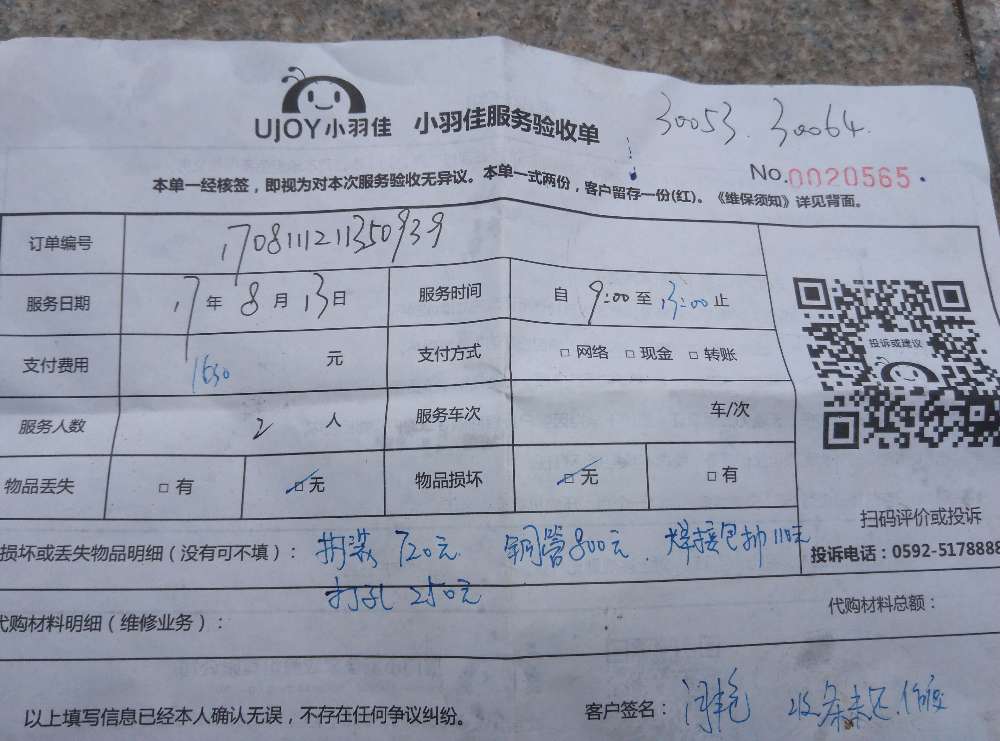 UJOY小羽佳 小羽佳服务验收单
30053. 30064.
No.0020565
本单一经核签，即视为对本次服务验收无异议。本单一式两份，客户留存一份(红)。《维保须知》详见背面。
订单编号 170811121135093​9
服务日期 17年 8月 13日 服务时间 自 9:00 至 13:00 止
投诉或建议
支付费用 1650 元 支付方式 □ 网络 □ 现金 □ 转账
服务人数 2 人 服务车次 车/次
物品丢失 □ 有 □ 无 物品损坏 □ 无 □ 有
扫码评价或投诉
损坏或丢失物品明细（没有可不填）： 拆装 720元 铜管800元. 焊接包扎110元
投诉电话：0592-5178888
打孔 250元
代购材料明细（维修业务）： 代购材料总额：
以上填写信息已经本人确认无误，不存在任何争议纠纷。 客户签名： 收条未还